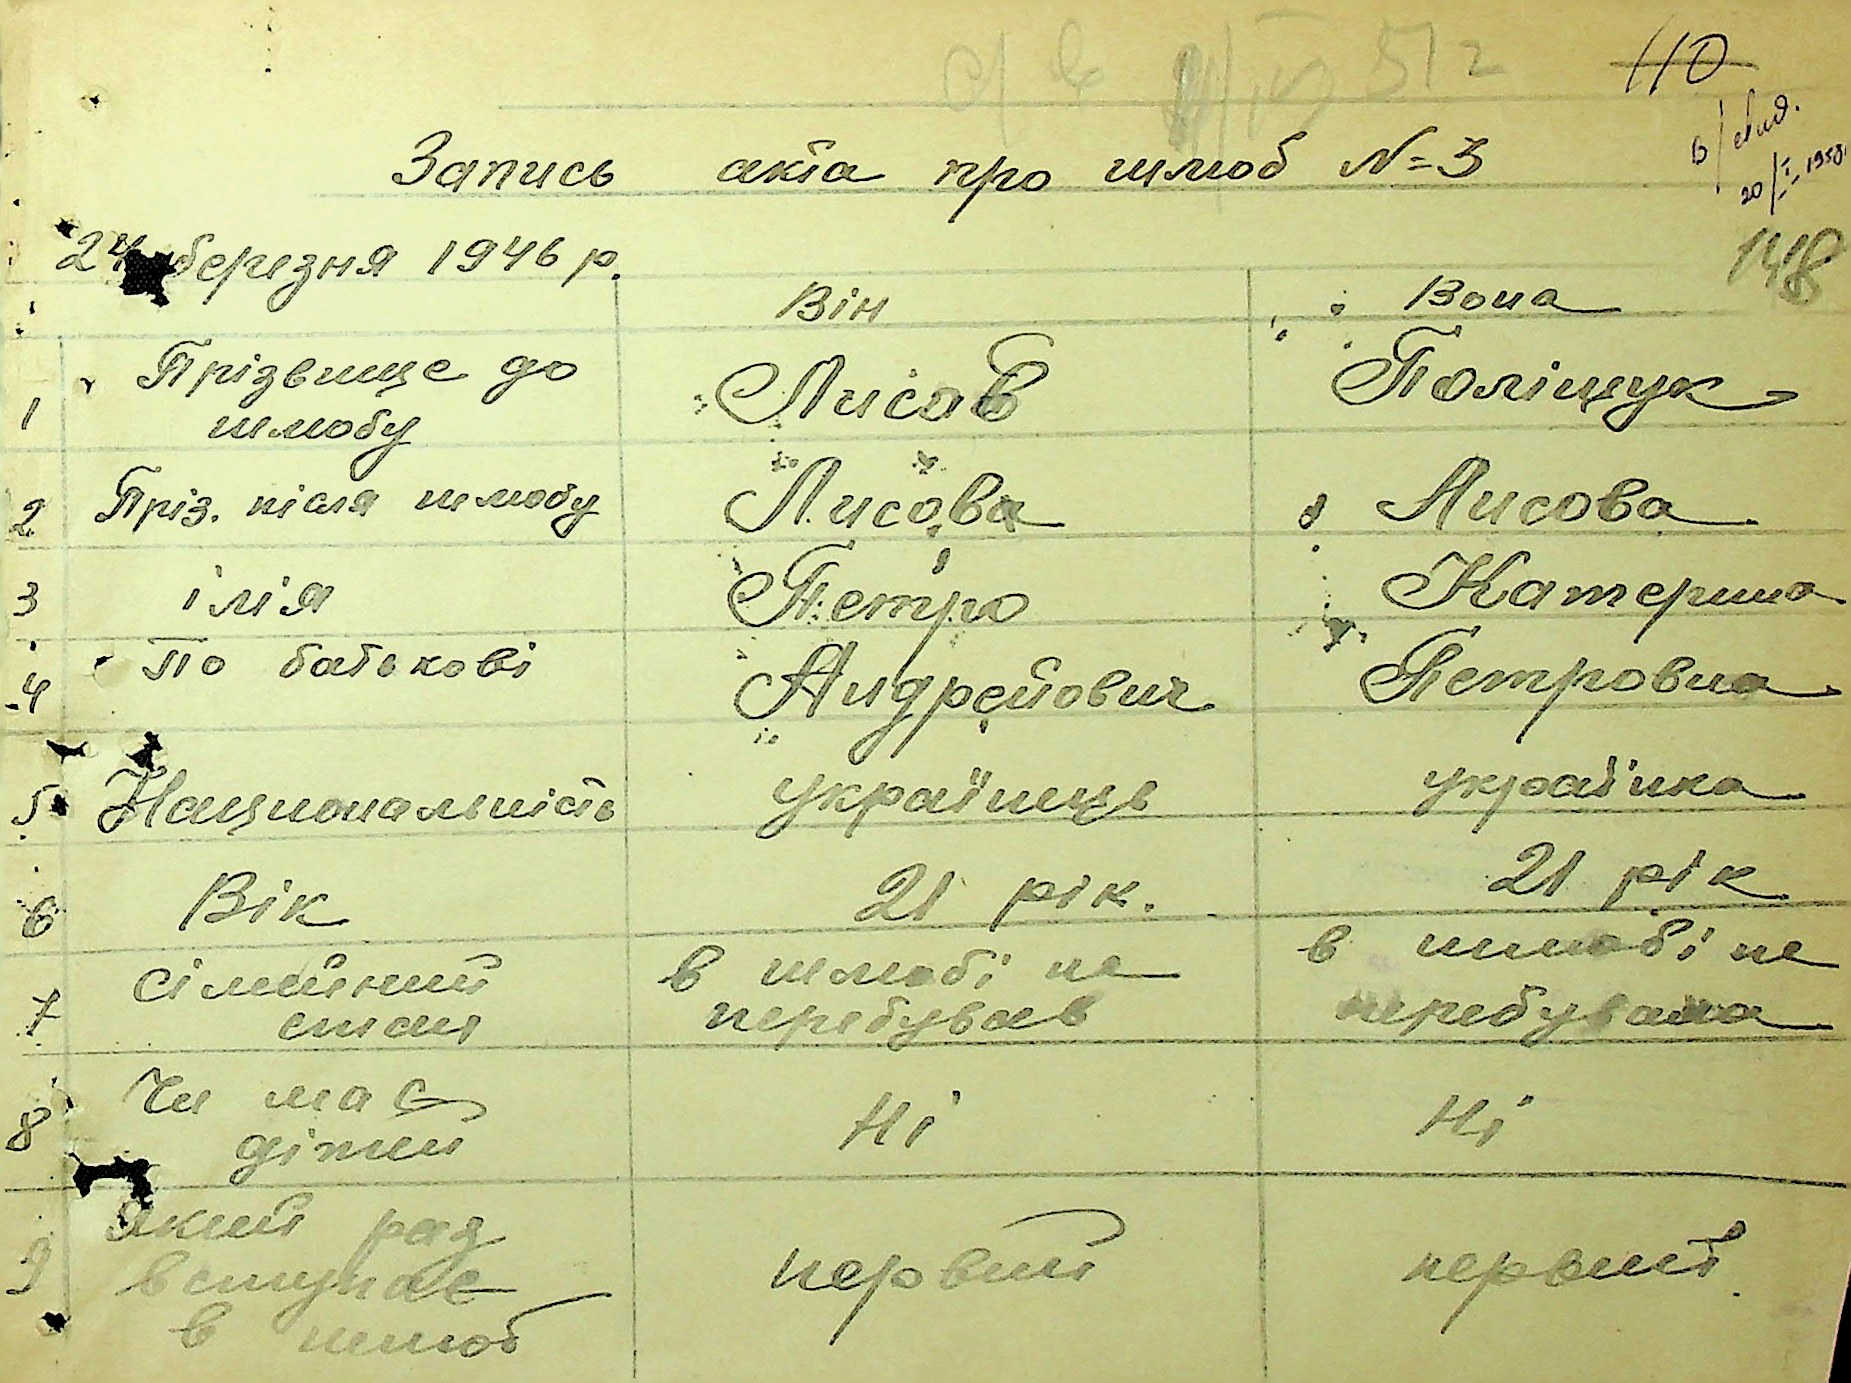 110
в/свид.
20/II 1958
Запись акта про шлюб №3
148
24 березня 1946 р.
Він Вона
1 Прізвище до шлюбу Лисов Поліщук
2 Пріз. після шлюбу Лисова Лисова
3 імія Петро Катерина
4 По батькові Андрейович Петровна
5 Национальність українець українка
6 Вік 21 рік. 21 рік
7 сімейний стан в шлюбі не перебував в шлюбі не перебувала
8 Чи має дітей Ні Ні
9 який раз вступає в шлюб первий первий.